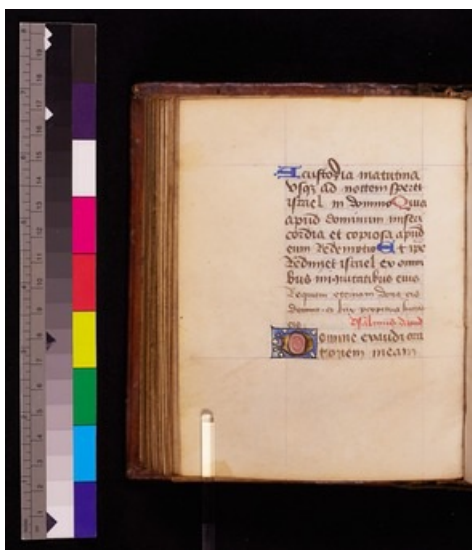 A custodia matutina
vsqz ad noctem speret
israel in domino Quia
apud dominum miseri
cordia et copiosa apud
eum Redemptio Et ipe
Redimet israel ex omni
bus iniquitatibus eius
Requiem eternam dona eis
domine et lux perpetua luceat
eis psalmus dauid
Domine exaudi ora
tionem meam